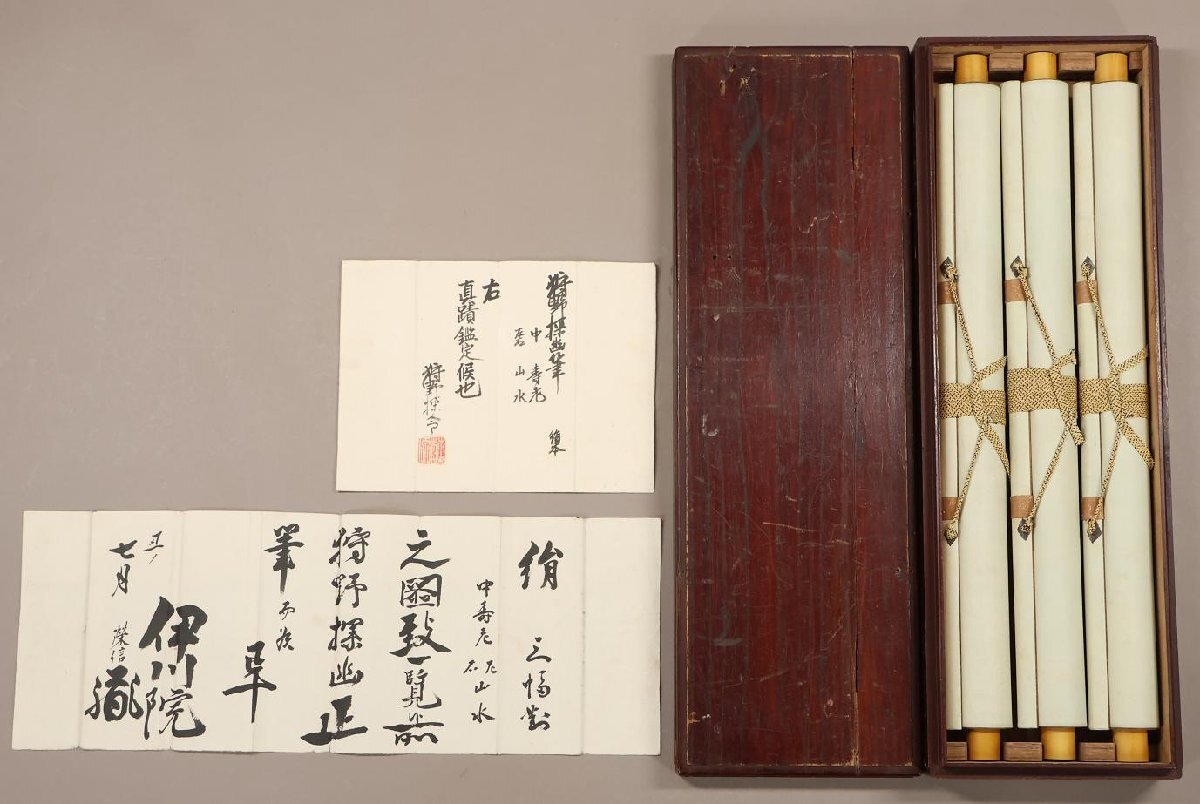 狩野探幽筆
中 寿老
左右 山水
絹本
右
真蹟鑑定候也
狩野探令
絹 三幅対
中寿老 左右山水
之圖致一覧候所
狩野探幽正
筆而候
丑ノ
七月
伊川院
榮信